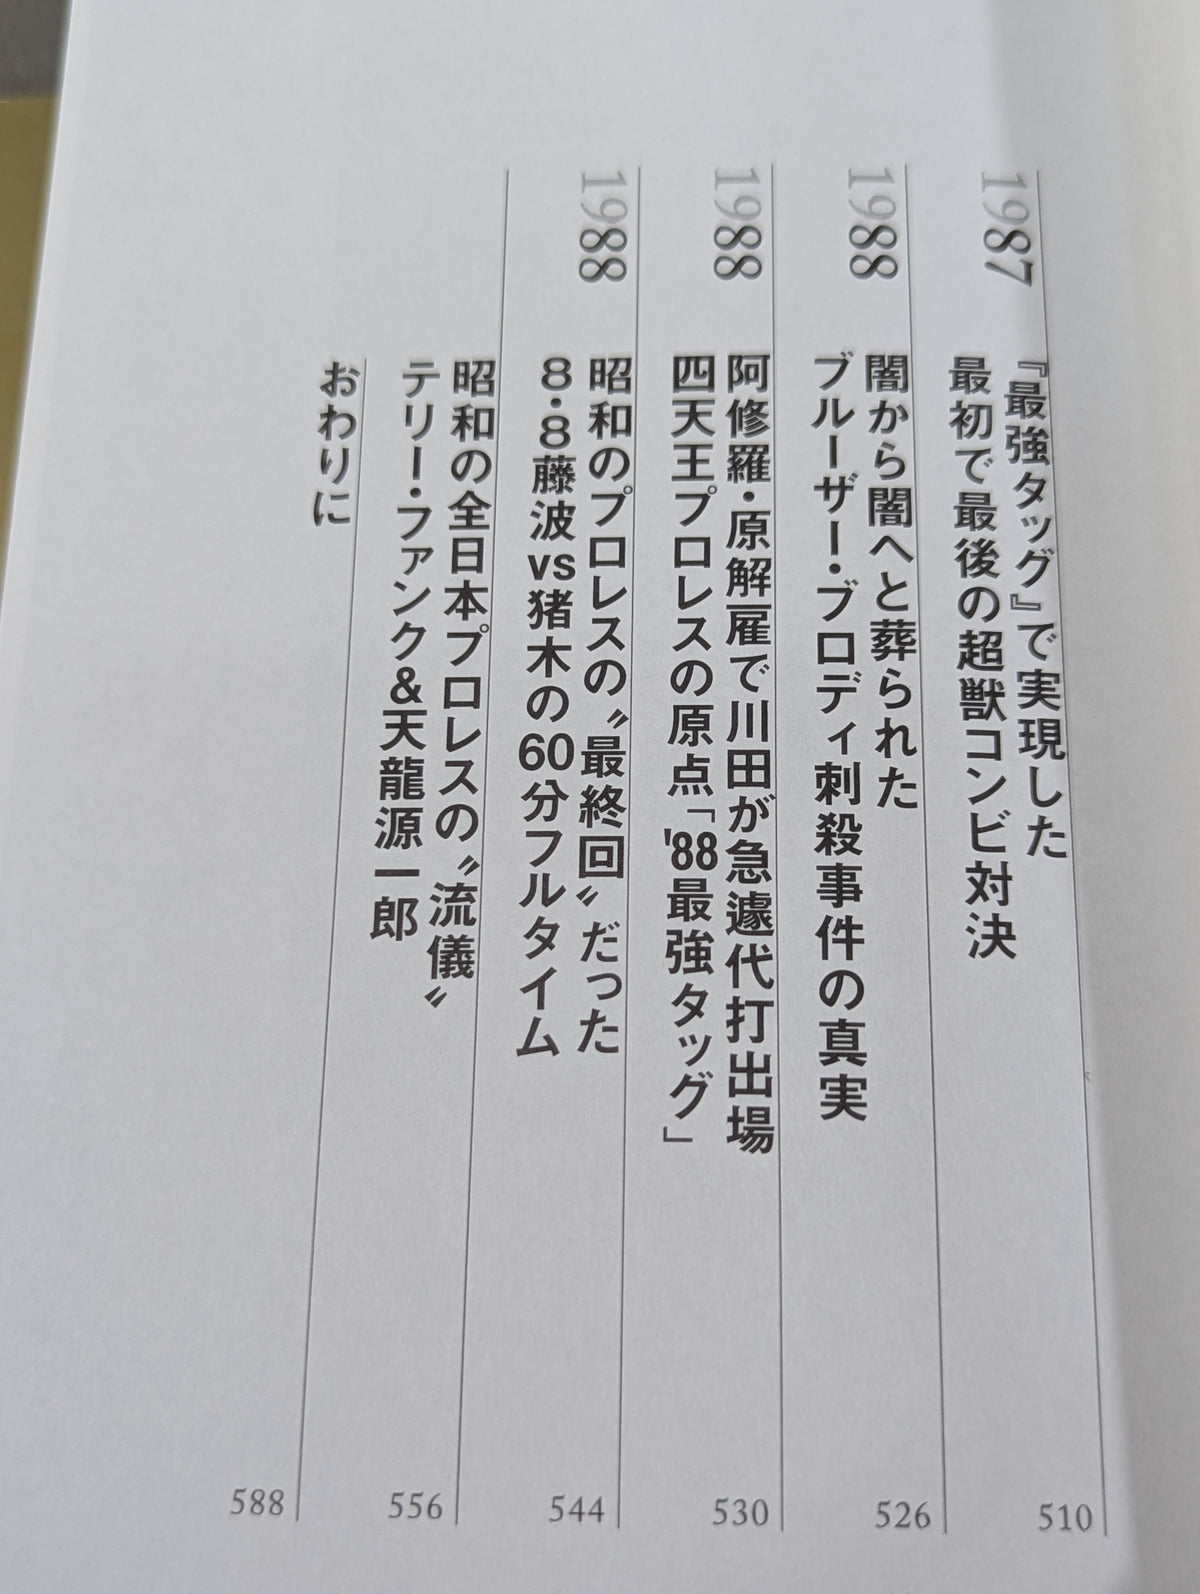 1987
『最強タッグ』で実現した
最初で最後の超獣コンビ対決
510
1988
闇から闇へと葬られた
ブルーザー・ブロディ刺殺事件の真実
526
1988
阿修羅・原解雇で川田が急遽代打出場
四天王プロレスの原点「'88最強タッグ」
530
1988
昭和のプロレスの〝最終回〟だった
8・8藤波vs猪木の60分フルタイム
544
昭和の全日本プロレスの〝流儀〟
テリー・ファンク&天龍源一郎
556
おわりに
588